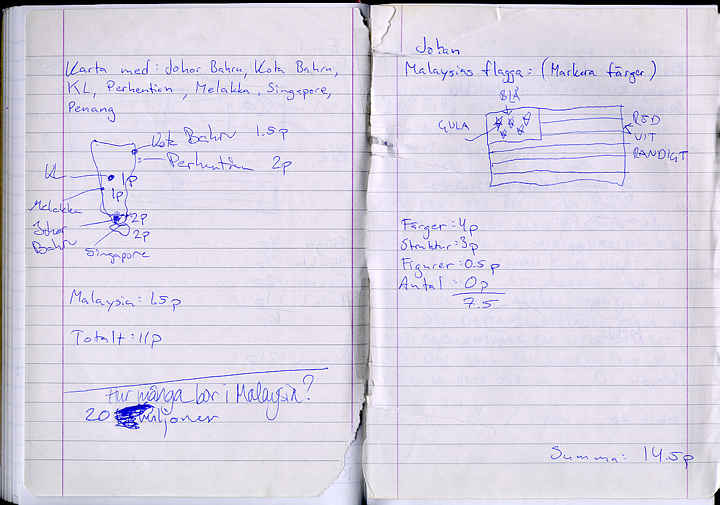 Karta med: Johor Bahru, Kota Bahru,
KL, Perhentian, Melakka, Singapore,
Penang
Kota Bahru 1.5p
Perhentian 2p
KL
1p
1p
Melakka
2p
Johor
Bahru
2p
Singapore
Malaysia: 1.5p
Totalt: 11p
Hur många bor i Malaysia?
20 miljoner
Johan
Malaysias flagga: (Markera färger)
BLÅ
GULA
RÖD
VIT
RANDIGT
Färger: 4p
Struktur: 3p
Figurer: 0.5p
Antal: 0p
7.5
Summa: 14.5p